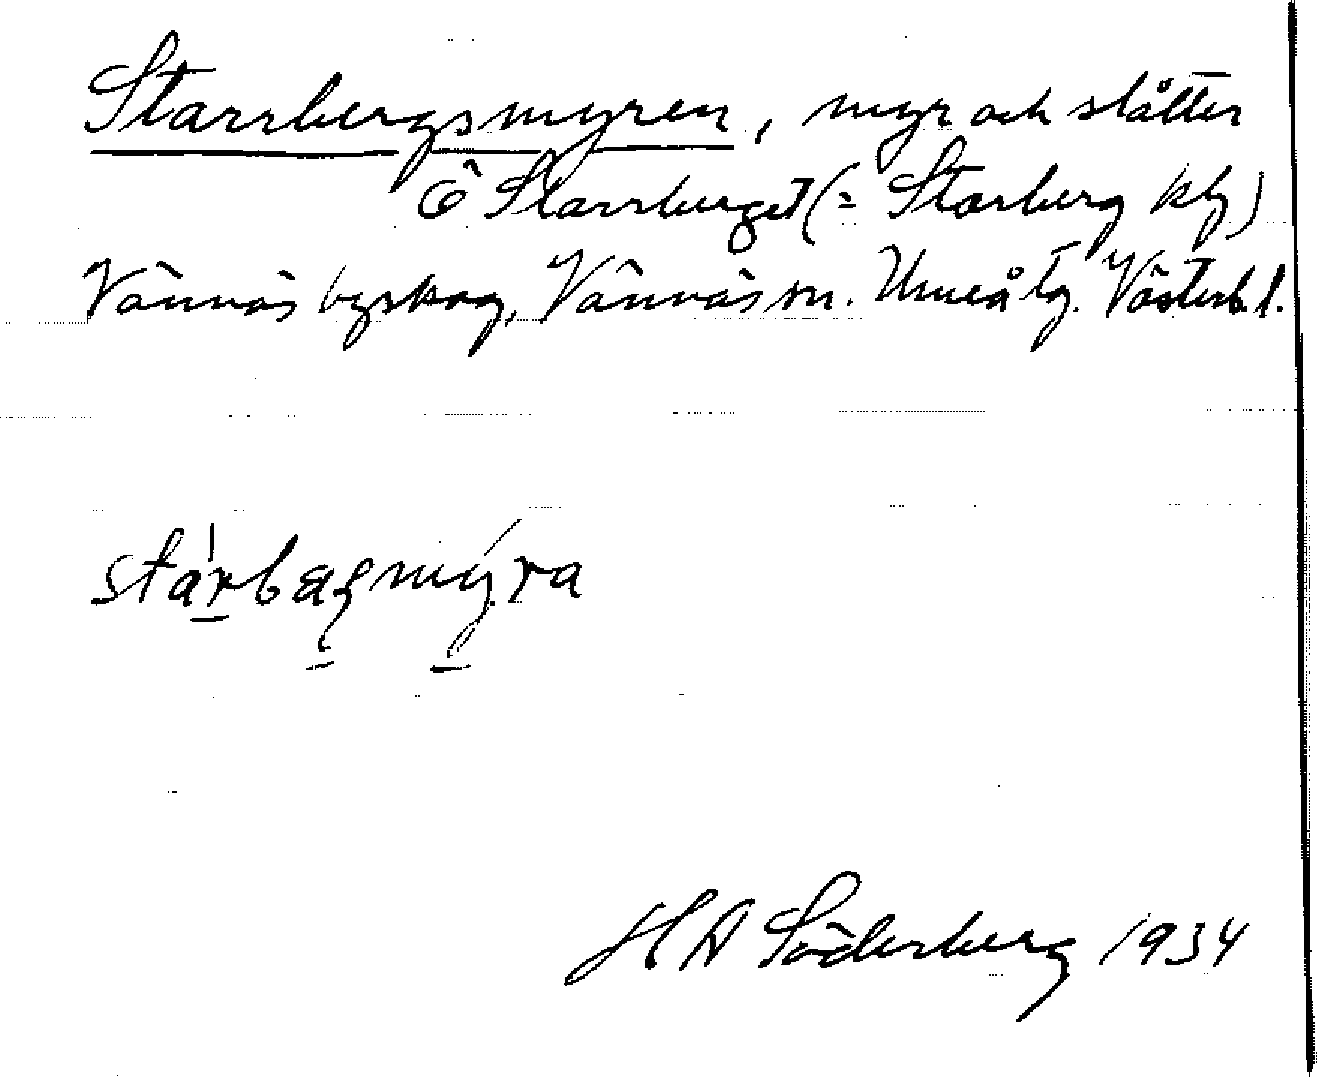 Starrbergsmyren, myr och slåtter
Ö Starrberget (= Starberg kb)
Vännäs byskog, Vännäs sn. Umeå tg. Västerb. l.
starbærmyra
H A Söderberg 1934